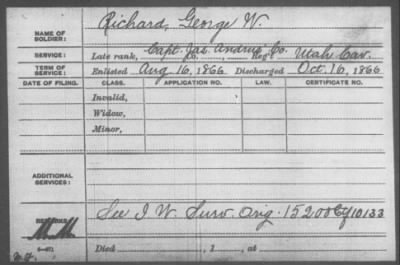 NAME OF SOLDIER: Richard, George W.
SERVICE: Late rank, Capt. Jas. Andrus Co. Reg't Utah Cav.
TERM OF SERVICE: Enlisted Aug 16, 1866 Discharged Oct. 16, 1866
DATE OF FILING. CLASS. APPLICATION NO. LAW. CERTIFICATE NO.
Invalid,
Widow,
Minor,
ADDITIONAL SERVICES:
REMARKS: See I. W. Surv. Orig. 15200 10133
Died , 1 , at